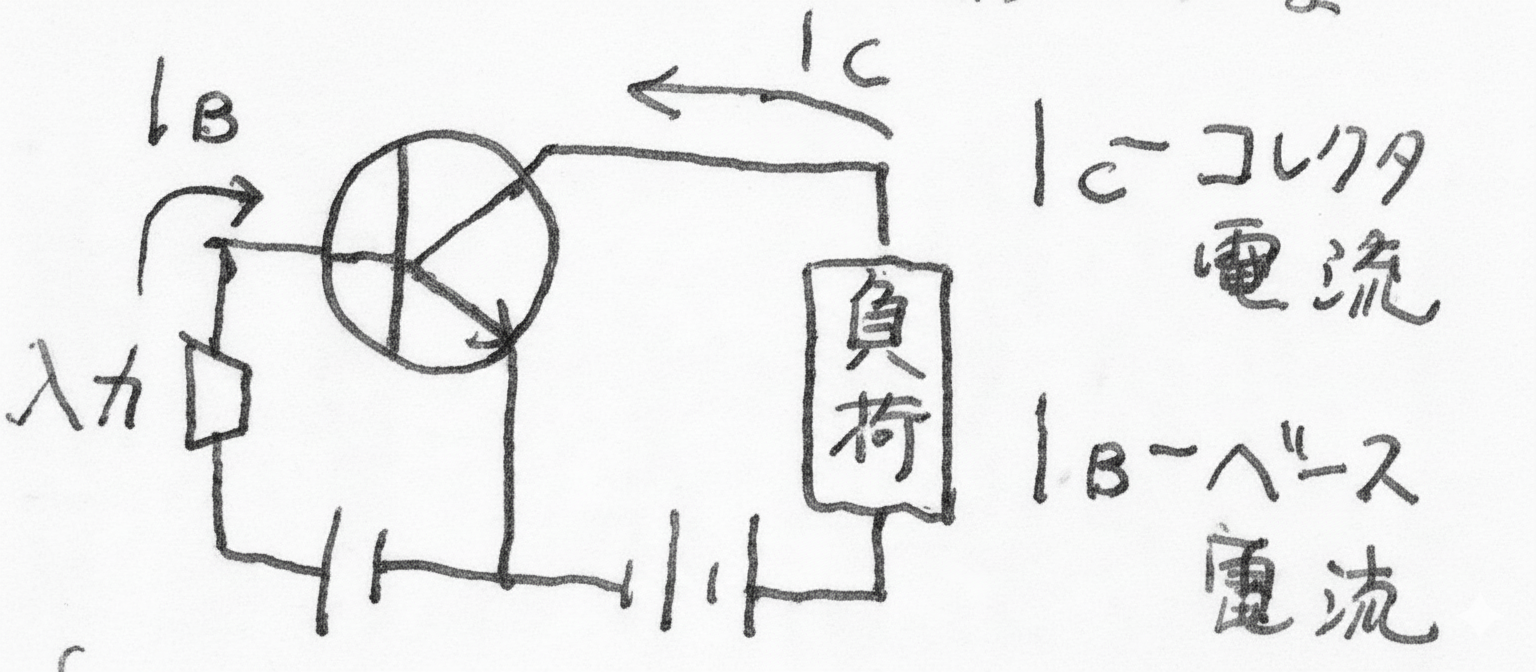 IC
IB
入力
負荷
IC-コレクタ
電流
IB-ベース
電流